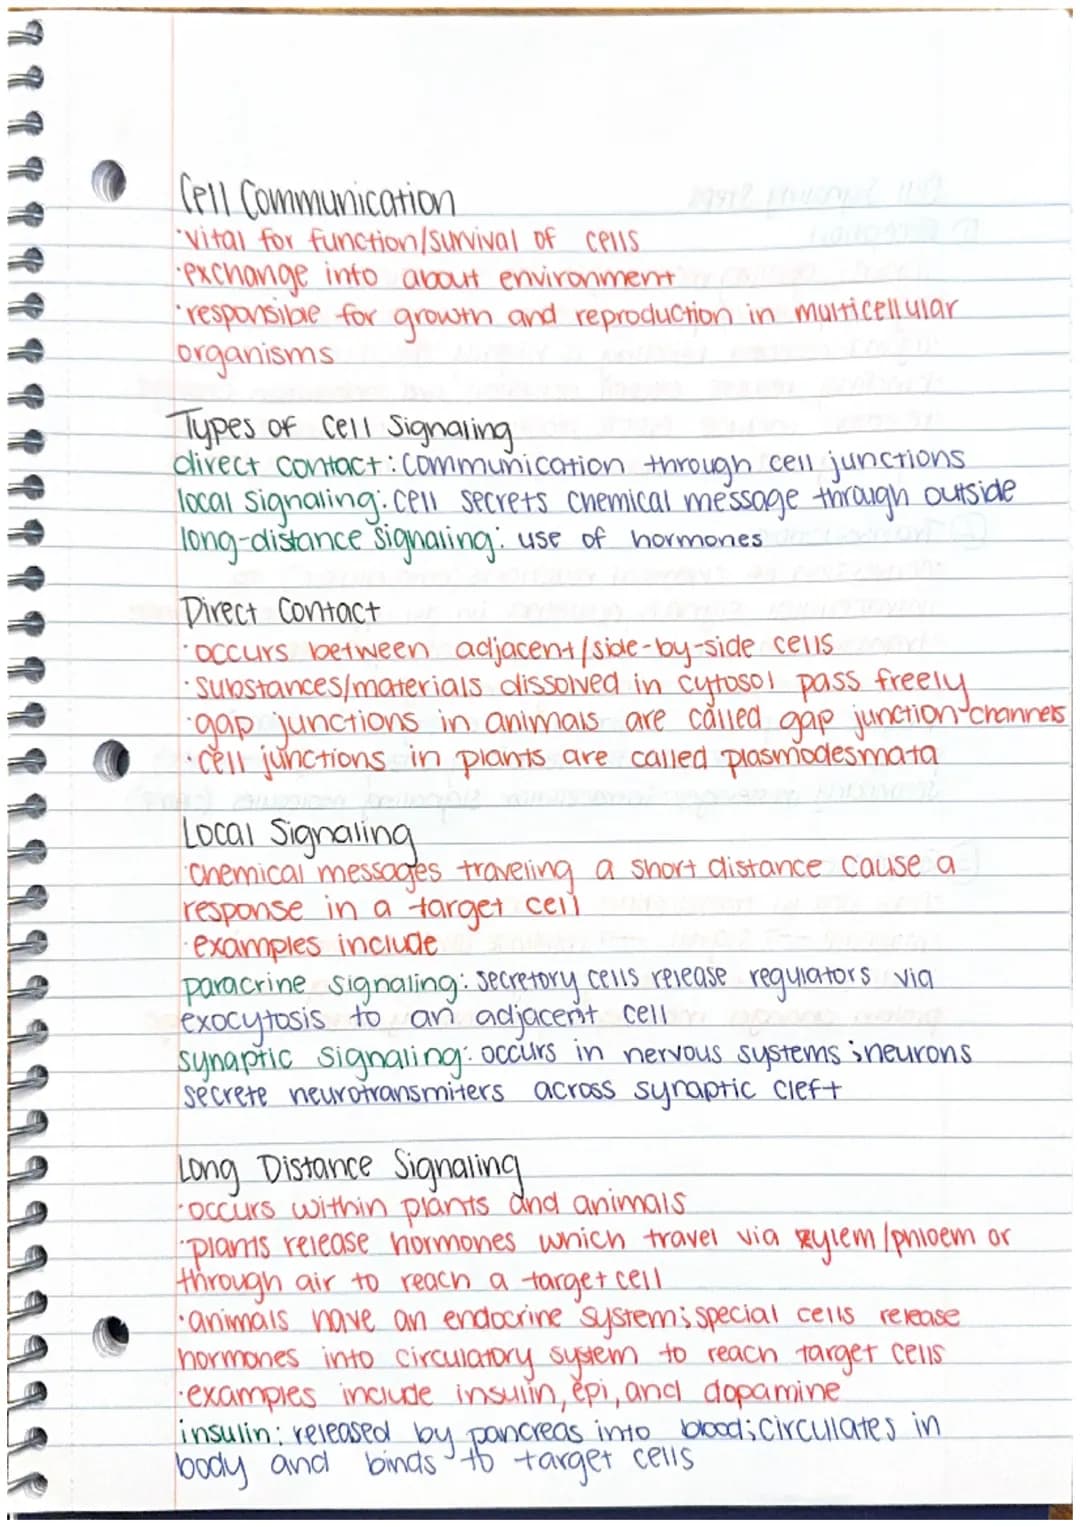 Cell Communication
·vital for function/survival of cells
·exchange into about environment
·responsible for growth and reproduction in multicellular
organisms
Types of Cell Signaling
direct contact: communication through cell junctions
local signaling: cell secrets chemical message through outside
long-distance signaling: use of hormones
Direct Contact
·occurs between adjacent/side-by-side cells
·substances/materials dissolved in cytosol pass freely
·gap junctions in animals are called gap junction channels
·cell junctions in plants are called plasmodesmata
Local Signaling
·chemical messages traveling a short distance cause a
response in a target cell
·examples include
paracrine signaling: secretory cells release regulators via
exocytosis to an adjacent cell
synaptic signaling: occurs in nervous systems; neurons
secrete neurotransmiters across synaptic cleft
Long Distance Signaling
·occurs within plants and animals
·plants release hormones which travel via xylem/phloem or
through air to reach a target cell
·animals have an endocrine system; special cells release
hormones into circulatory system to reach target cells
·examples include insulin, epi, and dopamine
insulin: released by pancreas into blood; circulates in
body and binds to target cells